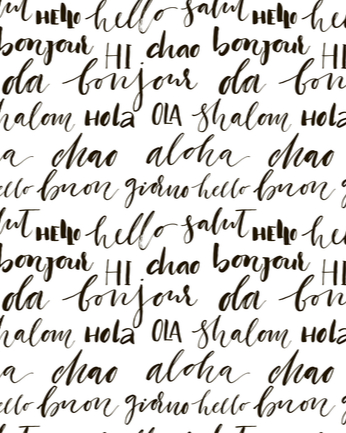 salut HELLO hello salut HELLO hello
bonjour HI chao bonjour HI
ola bonjour ola bonjour
shalom HOLA OLA shalom HOLA
aloha chao aloha chao
hello buon giorno hello buon giorno
salut HELLO hello salut HELLO hello
bonjour HI chao bonjour HI
ola bonjour ola bonjour
shalom HOLA OLA shalom HOLA
aloha chao aloha chao
hello buon giorno hello buon giorno